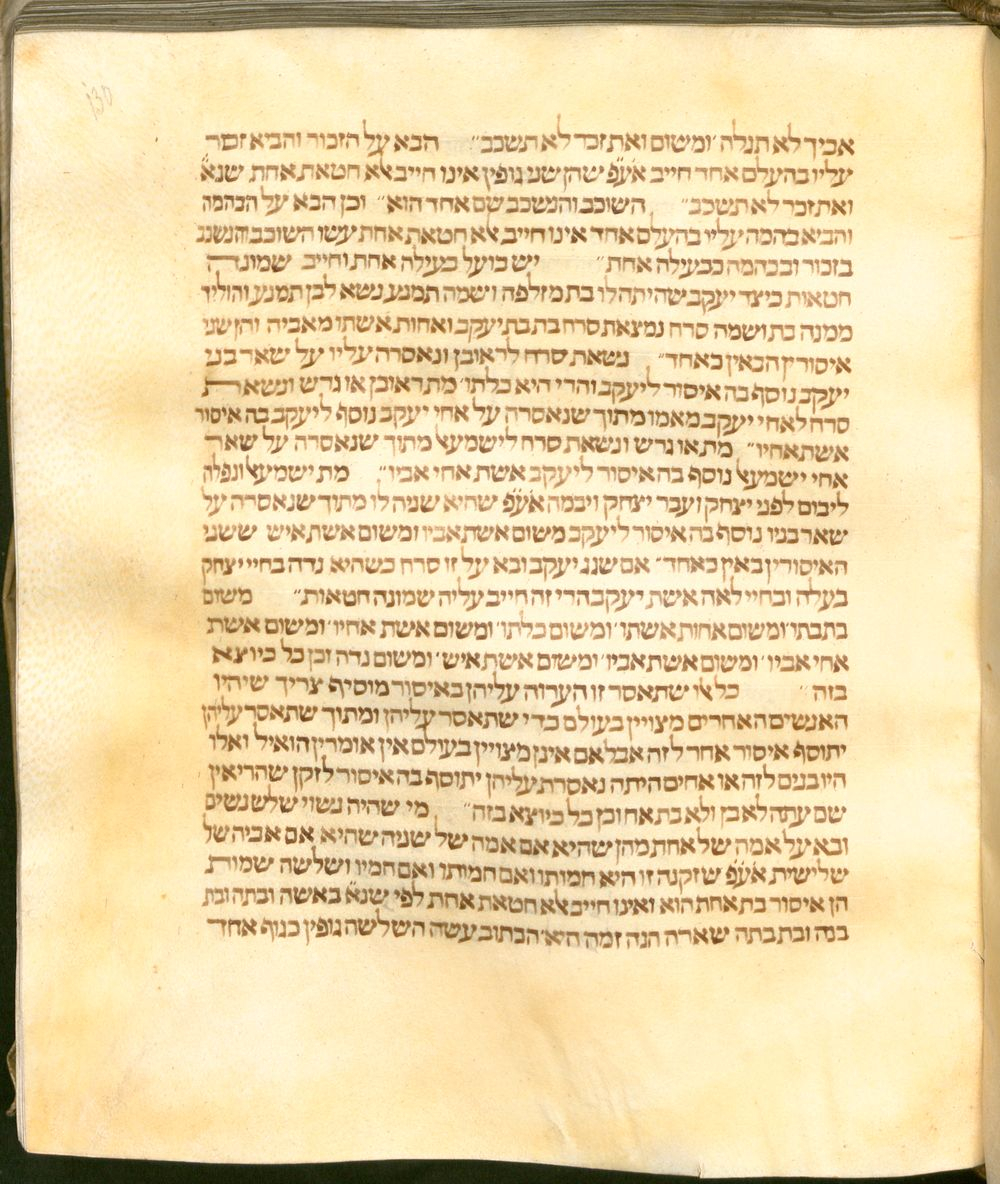 130
אביך לא תגלה ׳ומשום ואת זכר לא תשכב״ הבא על הזכור והביא זכור
עליו בהעלם אחד חייב אע״פ שהן שני גופין אינו חייב אלא חטאת אחת שנא׳
ואת זכר לא תשכב״ השוכב והנשכב שם אחד הוא״ וכן הבא על הבהמה
והביא בהמה עליו בהעלם אחד אינו חייב אלא חטאת אחת עשו השוכב והנשכב
בזכור ובבהמה כבעילה אחת״ יש בועל בעילה אחת וחייב שמונה
חטאות כיצד יעקב שהיתה לו בת מזלפה ושמה תמנע נשא לבן תמנע והוליד
ממנה בת ושמה סרח נמצאת סרח בת בת יעקב ואחות אשתו מאביה והן שני
איסורין הבאין כאחד״ נשאת סרח לראובן ונאסרה עליו על שאר בני
יעקב נוסף בה איסור ליעקב והרי היא כלתו׳ מת ראובן או גרש ונשאת
סרח לאחי יעקב מאמו מתוך שנאסרה על אחי יעקב נוסף ליעקב בה איסור
אשת אחיו״ מת או גרש ונשאת סרח לישמעאל מתוך שנאסרה על שאר
אחי ישמעאל נוסף בה איסור ליעקב אשת אחי אביו״ מת ישמעאל ונפלה
ליבום לפני יצחק ועבר יצחק ויבמה אע״פ שהיא שניה לו מתוך שנאסרה על
שאר בניו נוסף בה איסור ליעקב משום אשת אביו ומשום אשת איש ששני
האיסורין באין כאחד״ אם שגג יעקב ובא על זו סרח כשהיא נדה בחיי יצחק
בעלה ובחיי לאה אשת יעקב הרי זה חייב עליה שמונה חטאות״ משום
בת בתו׳ ומשום אחות אשתו׳ ומשום כלתו׳ ומשום אשת אחיו׳ ומשום אשת
אחי אביו׳ ומשום אשת אביו׳ ומשום אשת איש׳ ומשום נדה וכן כל כיוצא
בזה״ כל אלו שתאסר זו הערוה עליהן באיסור מוסיף צריך שיהיו
האנשים האחרים מצויין בעולם כדי שתאסר עליהן ומתוך שתאסר עליהן
יתוסף איסור אחר לזה אבל אם אינן מצויין בעולם אין אומרין הואיל ואלו
היו בנים לזה או אחים היתה נאסרת עליהן יתוסף בה איסור לזקן שהרי אין
שם עתה לא בן ולא בת אח וכן כל כיוצא בזה״ מי שהיה נשוי שלש נשים
ובא על אמה של אחת מהן שהיא אם אמה של שניה שהיא אם אביה של
שלישית אע״פ שזקנה זו היא חמותו ואם חמותו ואם חמיו ושלשה שמות
הן איסור בת אחת הוא ואינו חייב אלא חטאת אחת לפי שנא׳ באשה ובתה ובת
בנה ובת בתה שארה הנה זמה היא׳ הכתוב עשה השלשה גופין כגוף אחד